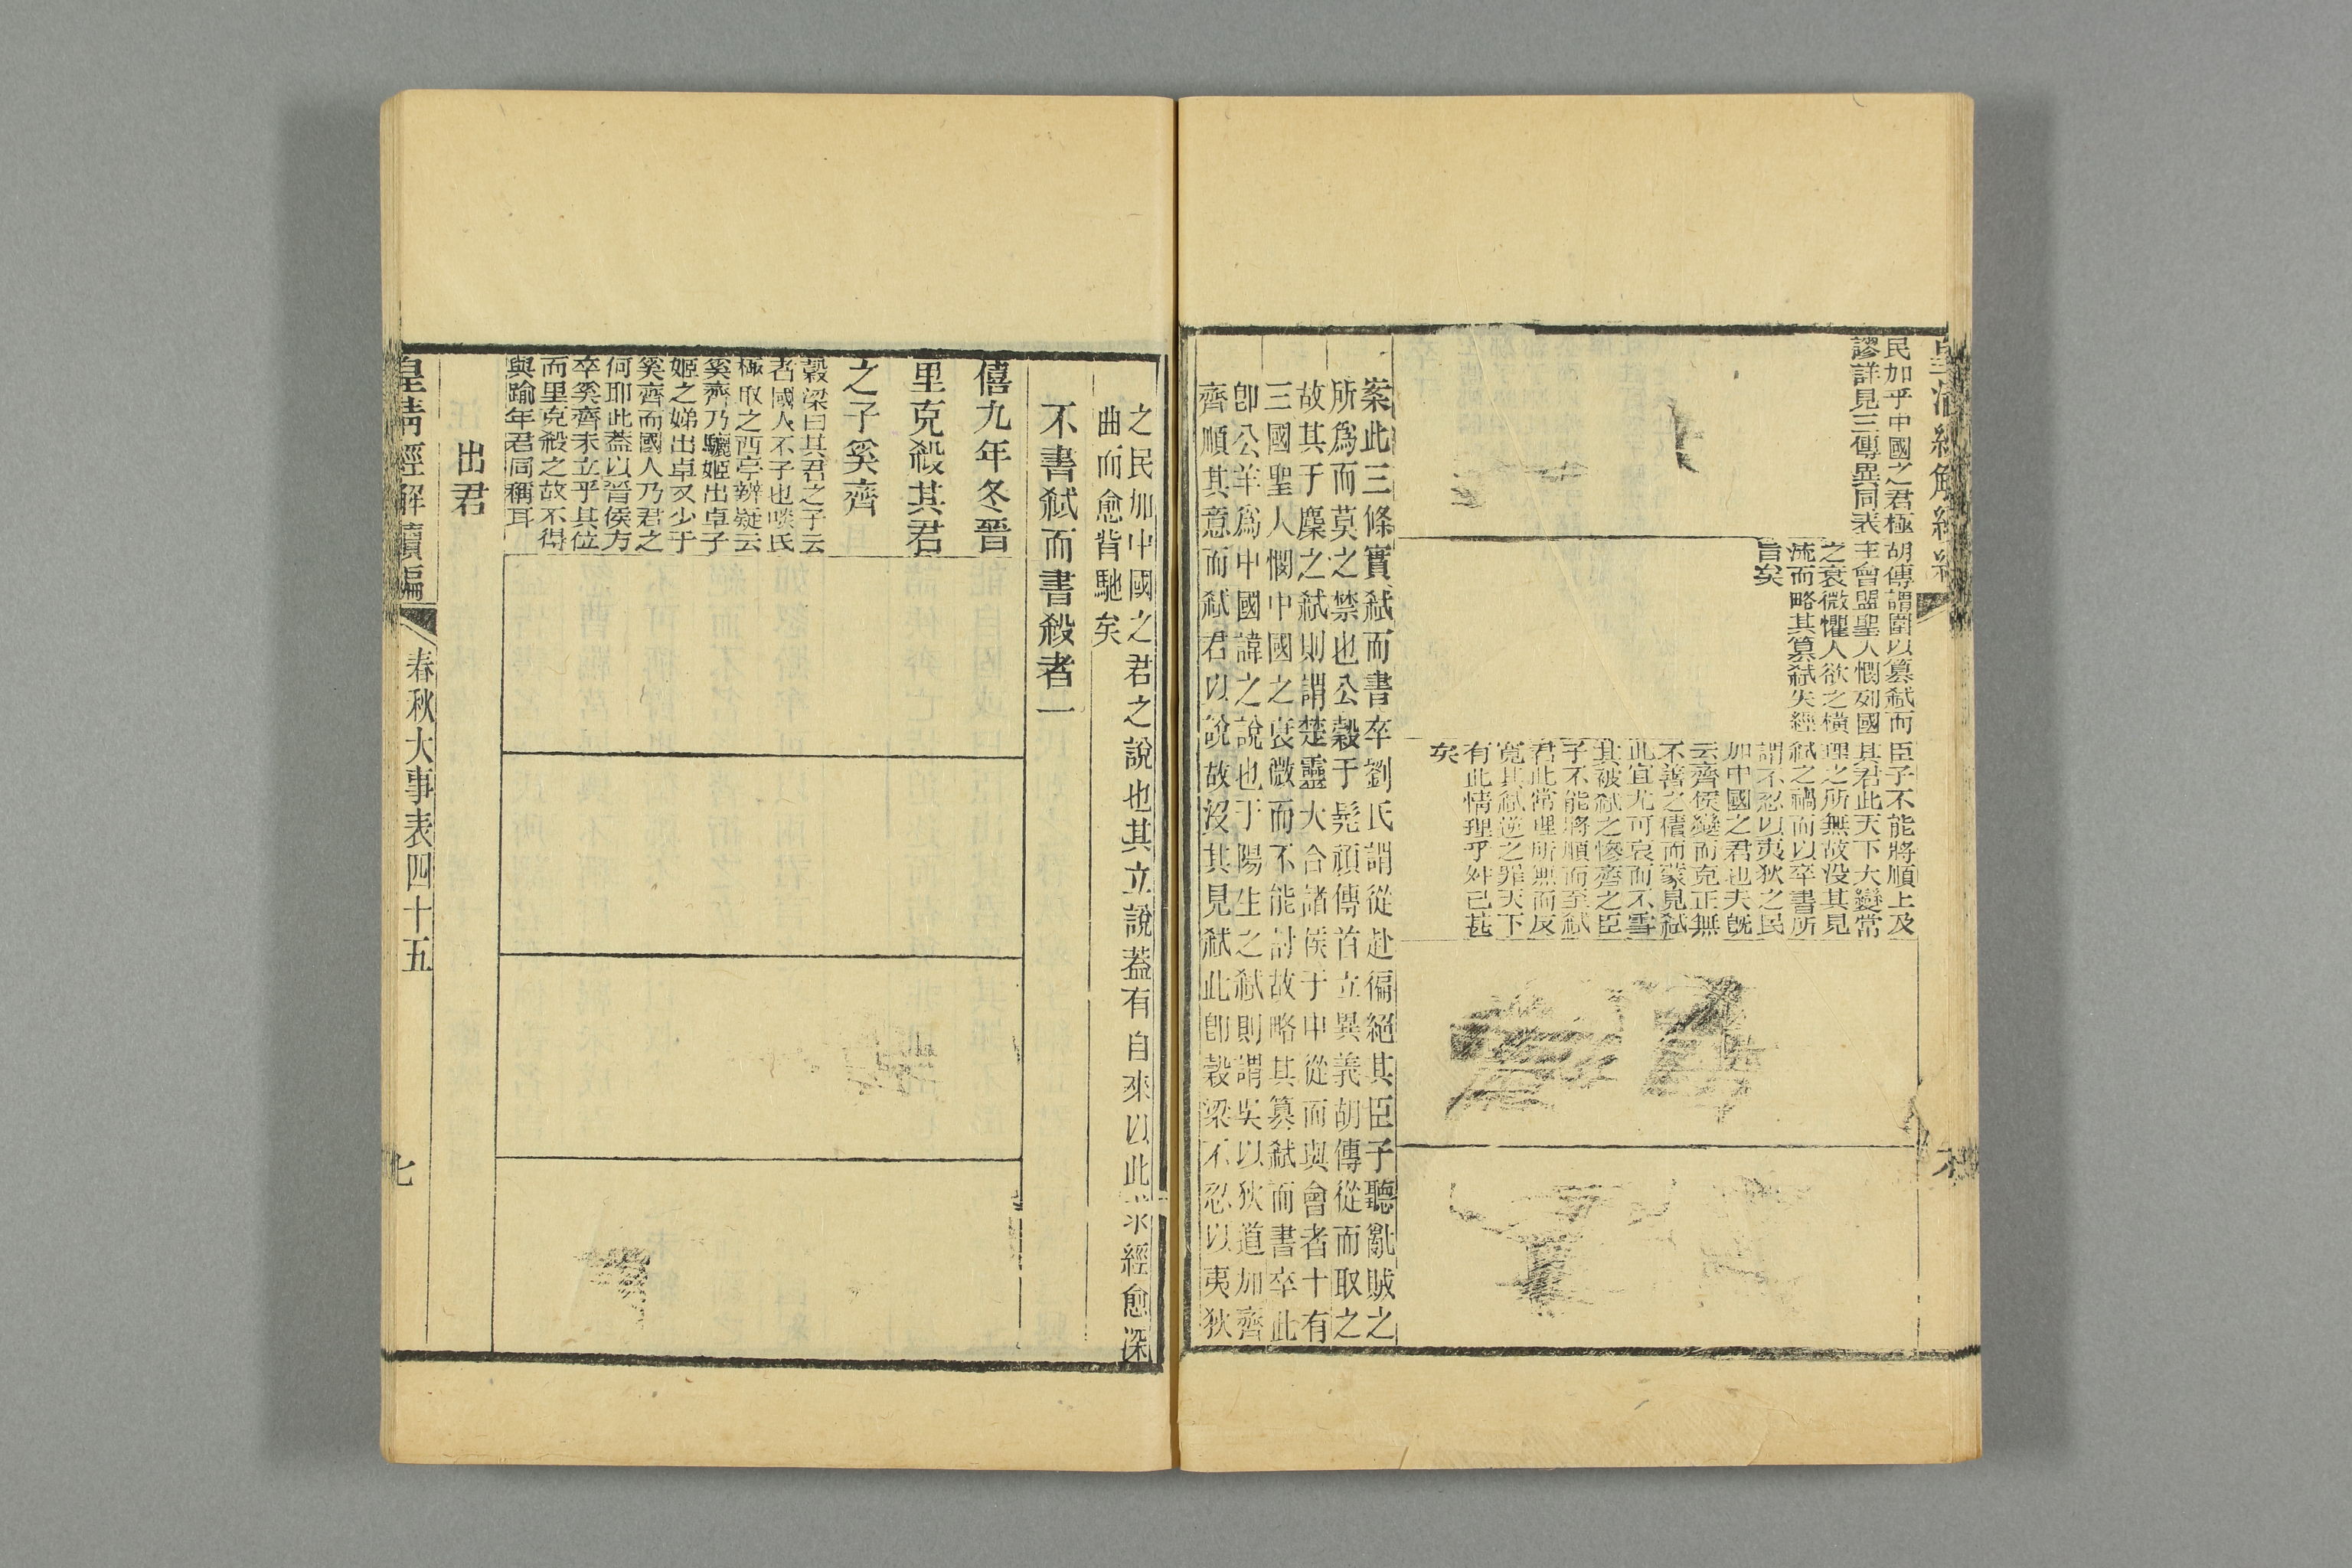 民加乎中國之君極
謬詳見三傳異同表
胡傳謂圍以簒弑而
主會盟聖人憫列國
之衰微懼人欲之橫
流而略其簒弑失經
旨矣
臣子不能將順上及
其君此天下大變常
理之所無故没其見
弑之禍而以卒書所
謂不忍以夷狄之民
加中國之君也夫旣
云齊侯變而克正無
不善之積而蒙見弑
此宜尤可哀而不雪
其被弑之慘齊之臣
子不能將順而至弑
君此常理所無而反
寬其弑逆之罪天下
有此情理乎舛已甚
矣
案此三條實弑而書卒劉氏謂從赴徧絕其臣子聽亂賊之
所爲而莫之禁也公穀于髡頑傳首立異義胡傳從而取之
故其于麇之弑則謂楚靈大合諸侯于申從而與會者十有
三國聖人憫中國之衰微而不能討故略其簒弑而書卒此
卽公羊爲中國諱之說也于陽生之弑則謂吳以狄道加齊
齊順其意而弑君以說故沒其見弑此卽穀梁不忍以夷狄
之民加中國之君之說也其立說葢有自來以此求經愈深
曲而愈背馳矣
不書弑而書殺者一
僖九年冬晉
里克殺其君
之子奚齊
穀梁曰其君之子云
者國人不子也啖氏
極取之西亭辨疑云
奚齊乃驪姬出卓子
姬之娣出卓又少于
奚齊而國人乃君之
何耶此葢以晉侯方
卒奚齊未立乎其位
而里克殺之故不得
與踰年君同稱耳
出君
皇清經解續編
春秋大事表四十五
七